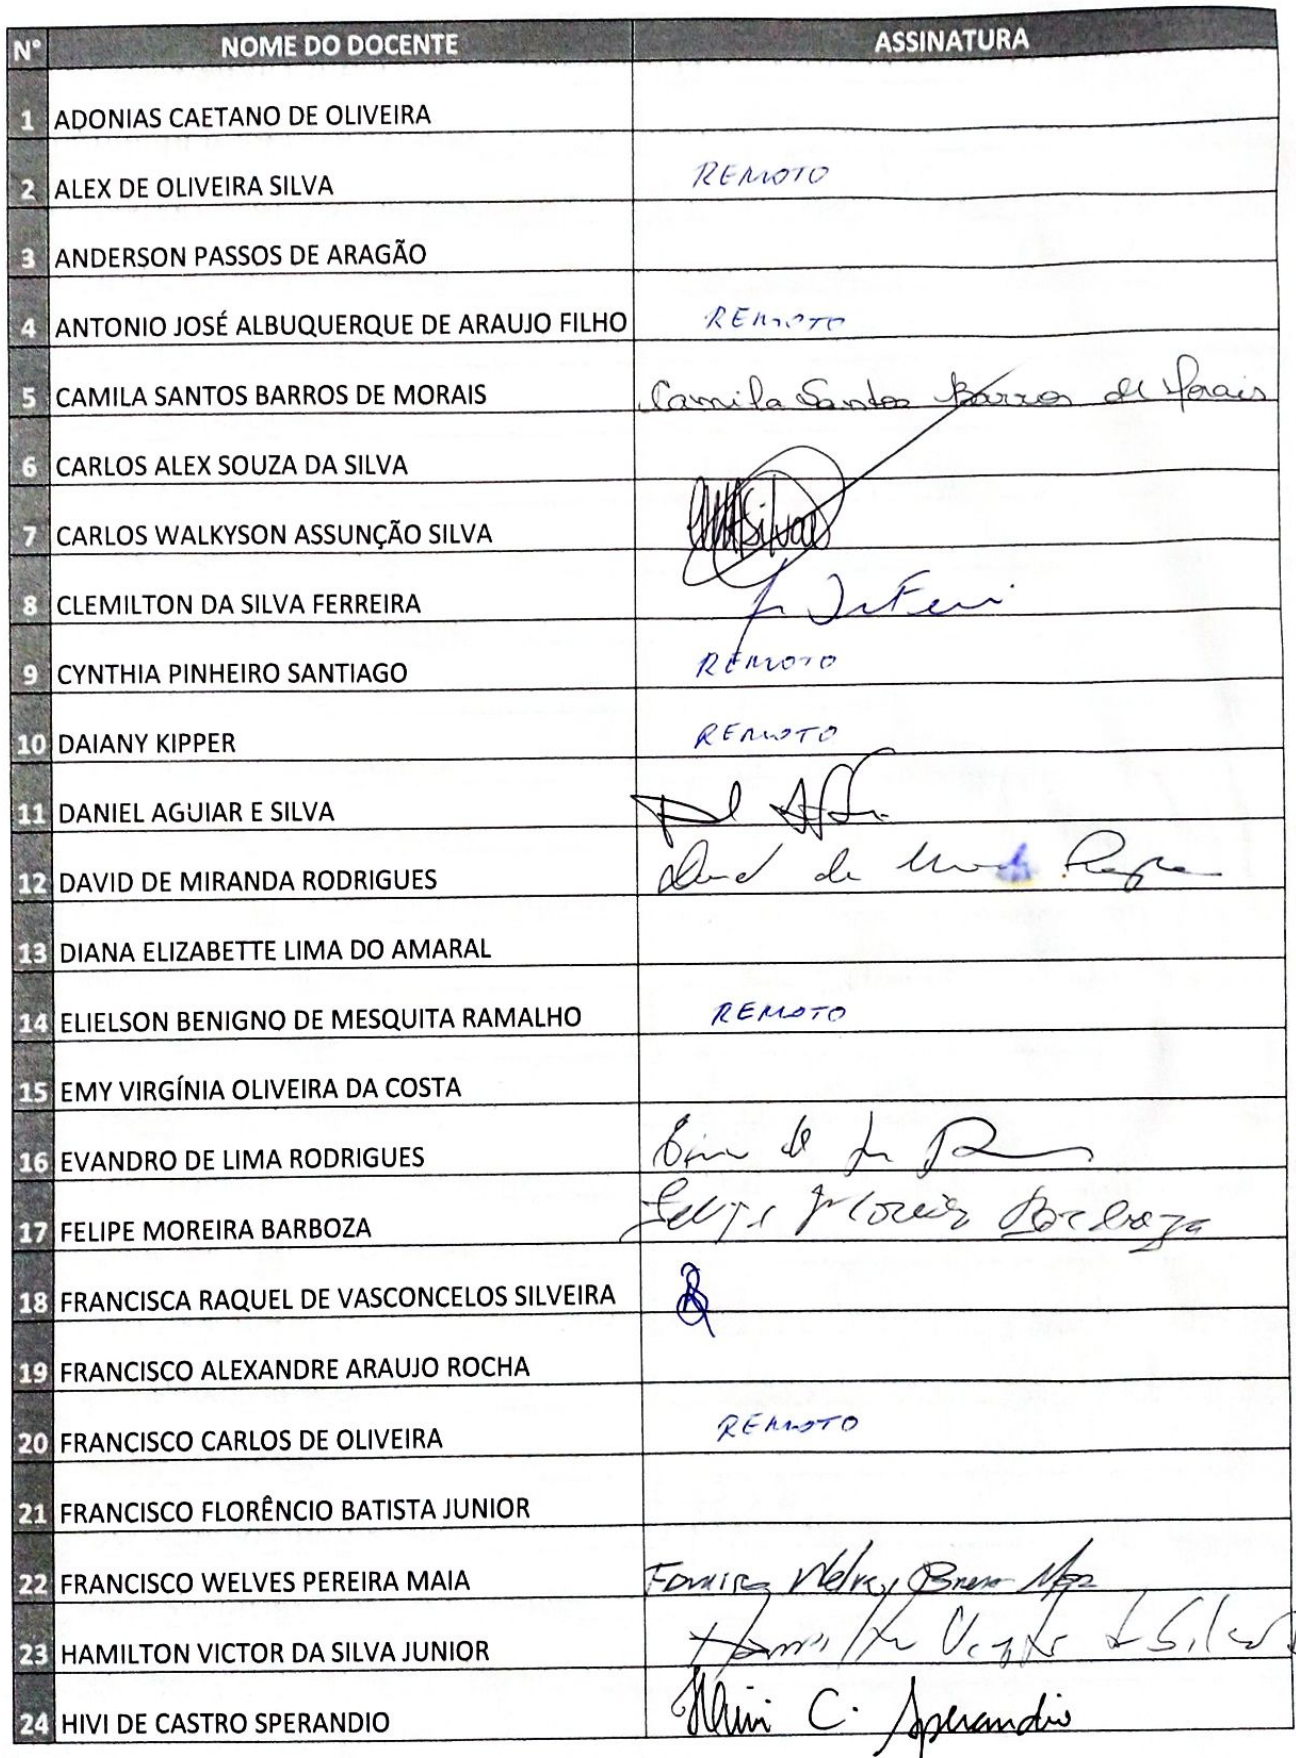 Nº NOME DO DOCENTE ASSINATURA
1 ADONIAS CAETANO DE OLIVEIRA
2 ALEX DE OLIVEIRA SILVA REMOTO
3 ANDERSON PASSOS DE ARAGÃO
4 ANTONIO JOSÉ ALBUQUERQUE DE ARAUJO FILHO REMOTO
5 CAMILA SANTOS BARROS DE MORAIS Camila Santos Barros de Morais
6 CARLOS ALEX SOUZA DA SILVA
7 CARLOS WALKYSON ASSUNÇÃO SILVA
8 CLEMILTON DA SILVA FERREIRA
9 CYNTHIA PINHEIRO SANTIAGO REMOTO
10 DAIANY KIPPER REMOTO
11 DANIEL AGUIAR E SILVA
12 DAVID DE MIRANDA RODRIGUES
13 DIANA ELIZABETTE LIMA DO AMARAL
14 ELIELSON BENIGNO DE MESQUITA RAMALHO REMOTO
15 EMY VIRGÍNIA OLIVEIRA DA COSTA
16 EVANDRO DE LIMA RODRIGUES
17 FELIPE MOREIRA BARBOZA Felipe Moreira Barboza
18 FRANCISCA RAQUEL DE VASCONCELOS SILVEIRA
19 FRANCISCO ALEXANDRE ARAUJO ROCHA
20 FRANCISCO CARLOS DE OLIVEIRA REMOTO
21 FRANCISCO FLORÊNCIO BATISTA JUNIOR
22 FRANCISCO WELVES PEREIRA MAIA
23 HAMILTON VICTOR DA SILVA JUNIOR
24 HIVI DE CASTRO SPERANDIO Hivi C. Sperandio